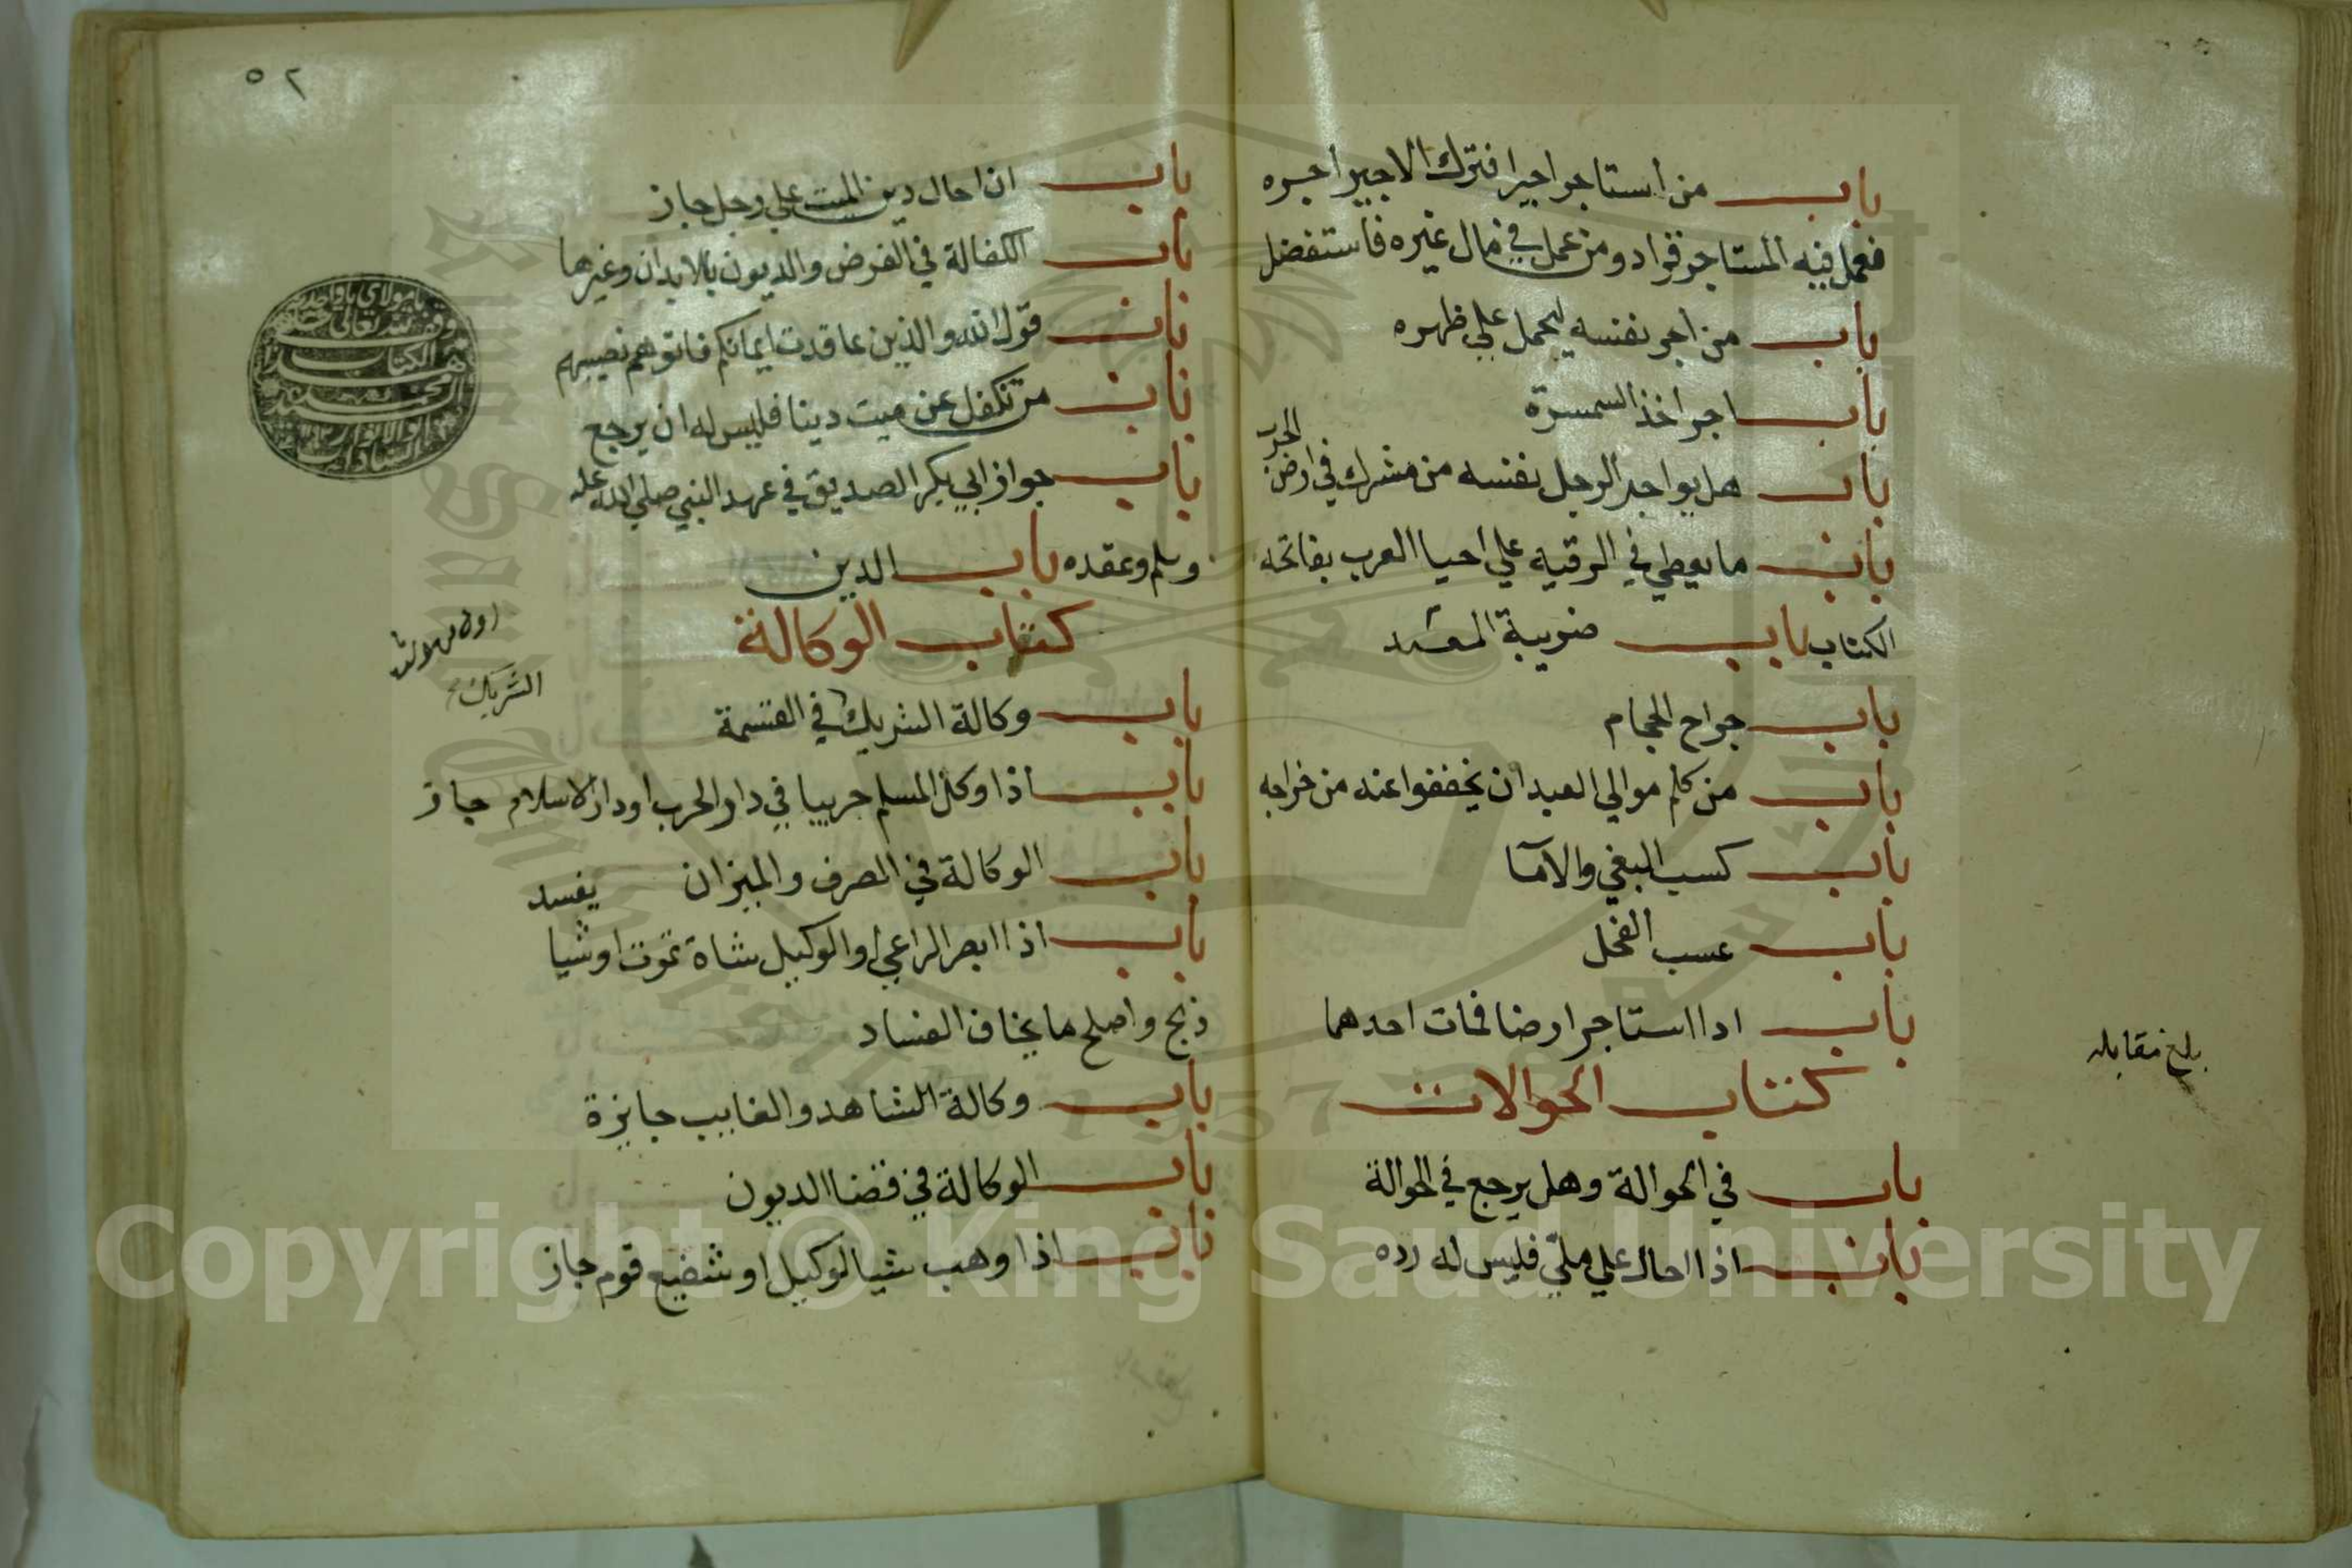 باب من استاجر اجيرا فترك الاجير اجره
فعمل فيه المستاجر فزاد ومن عمل في مال غيره فاستفضل
باب من اجر نفسه ليحمل علي ظهره
باب اجر اخذ السمسرة
باب هل يواجر الرجل نفسه من مشرك في ارض الحرب
باب ما يعطي في الرقيه علي احيا العرب بفاتحه
الكتاب باب ضريبة
باب جراح الحجام
باب من كلم موالي العبد ان يخففوا عنه من خراجه
باب كسب البغي والامآ
باب عسب الفحل
باب ادا استاجر ارضا فمات احدهما
بلغ مقابله
كتاب الحوالات
باب في الحوالة وهل يرجع في الحوالة
باب اذا احال علي ملي فليس له رده
٥٢
باب ان احال دين الميت علي رجل جاز
باب الكفالة في القرض والديون بالابدان وغيرها
باب قول الله والذين عاقدت ايمانكم فاتوهم نصيبهم
باب من تكفل عن ميت دينا فليس له ان يرجع
باب جوار ابي بكر الصديق في عهد النبي صلي الله عليه
وسلم وعقده باب الدين
كتاب الوكالة
الشريك
باب وكالة الشريك في القسمة
باب اذا وكل المسلم حربيا في دار الحرب او دار الاسلام جاز
باب الوكالة في الصرف والميزان
باب اذا ابصر الراعي او الوكيل شاة تموت او شيا يفسد
ذبح واصلح ما يخاف الفساد
باب وكالة الشاهد والغايب جايزة
باب الوكالة في قضا الديون
باب اذا وهب شيا لوكيل او شفيع قوم جاز
Copyright © King Saud University
1957